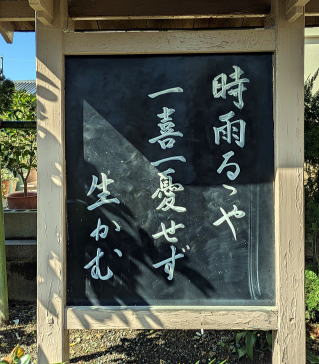 時雨るゝや
一喜一憂せず
生かむ